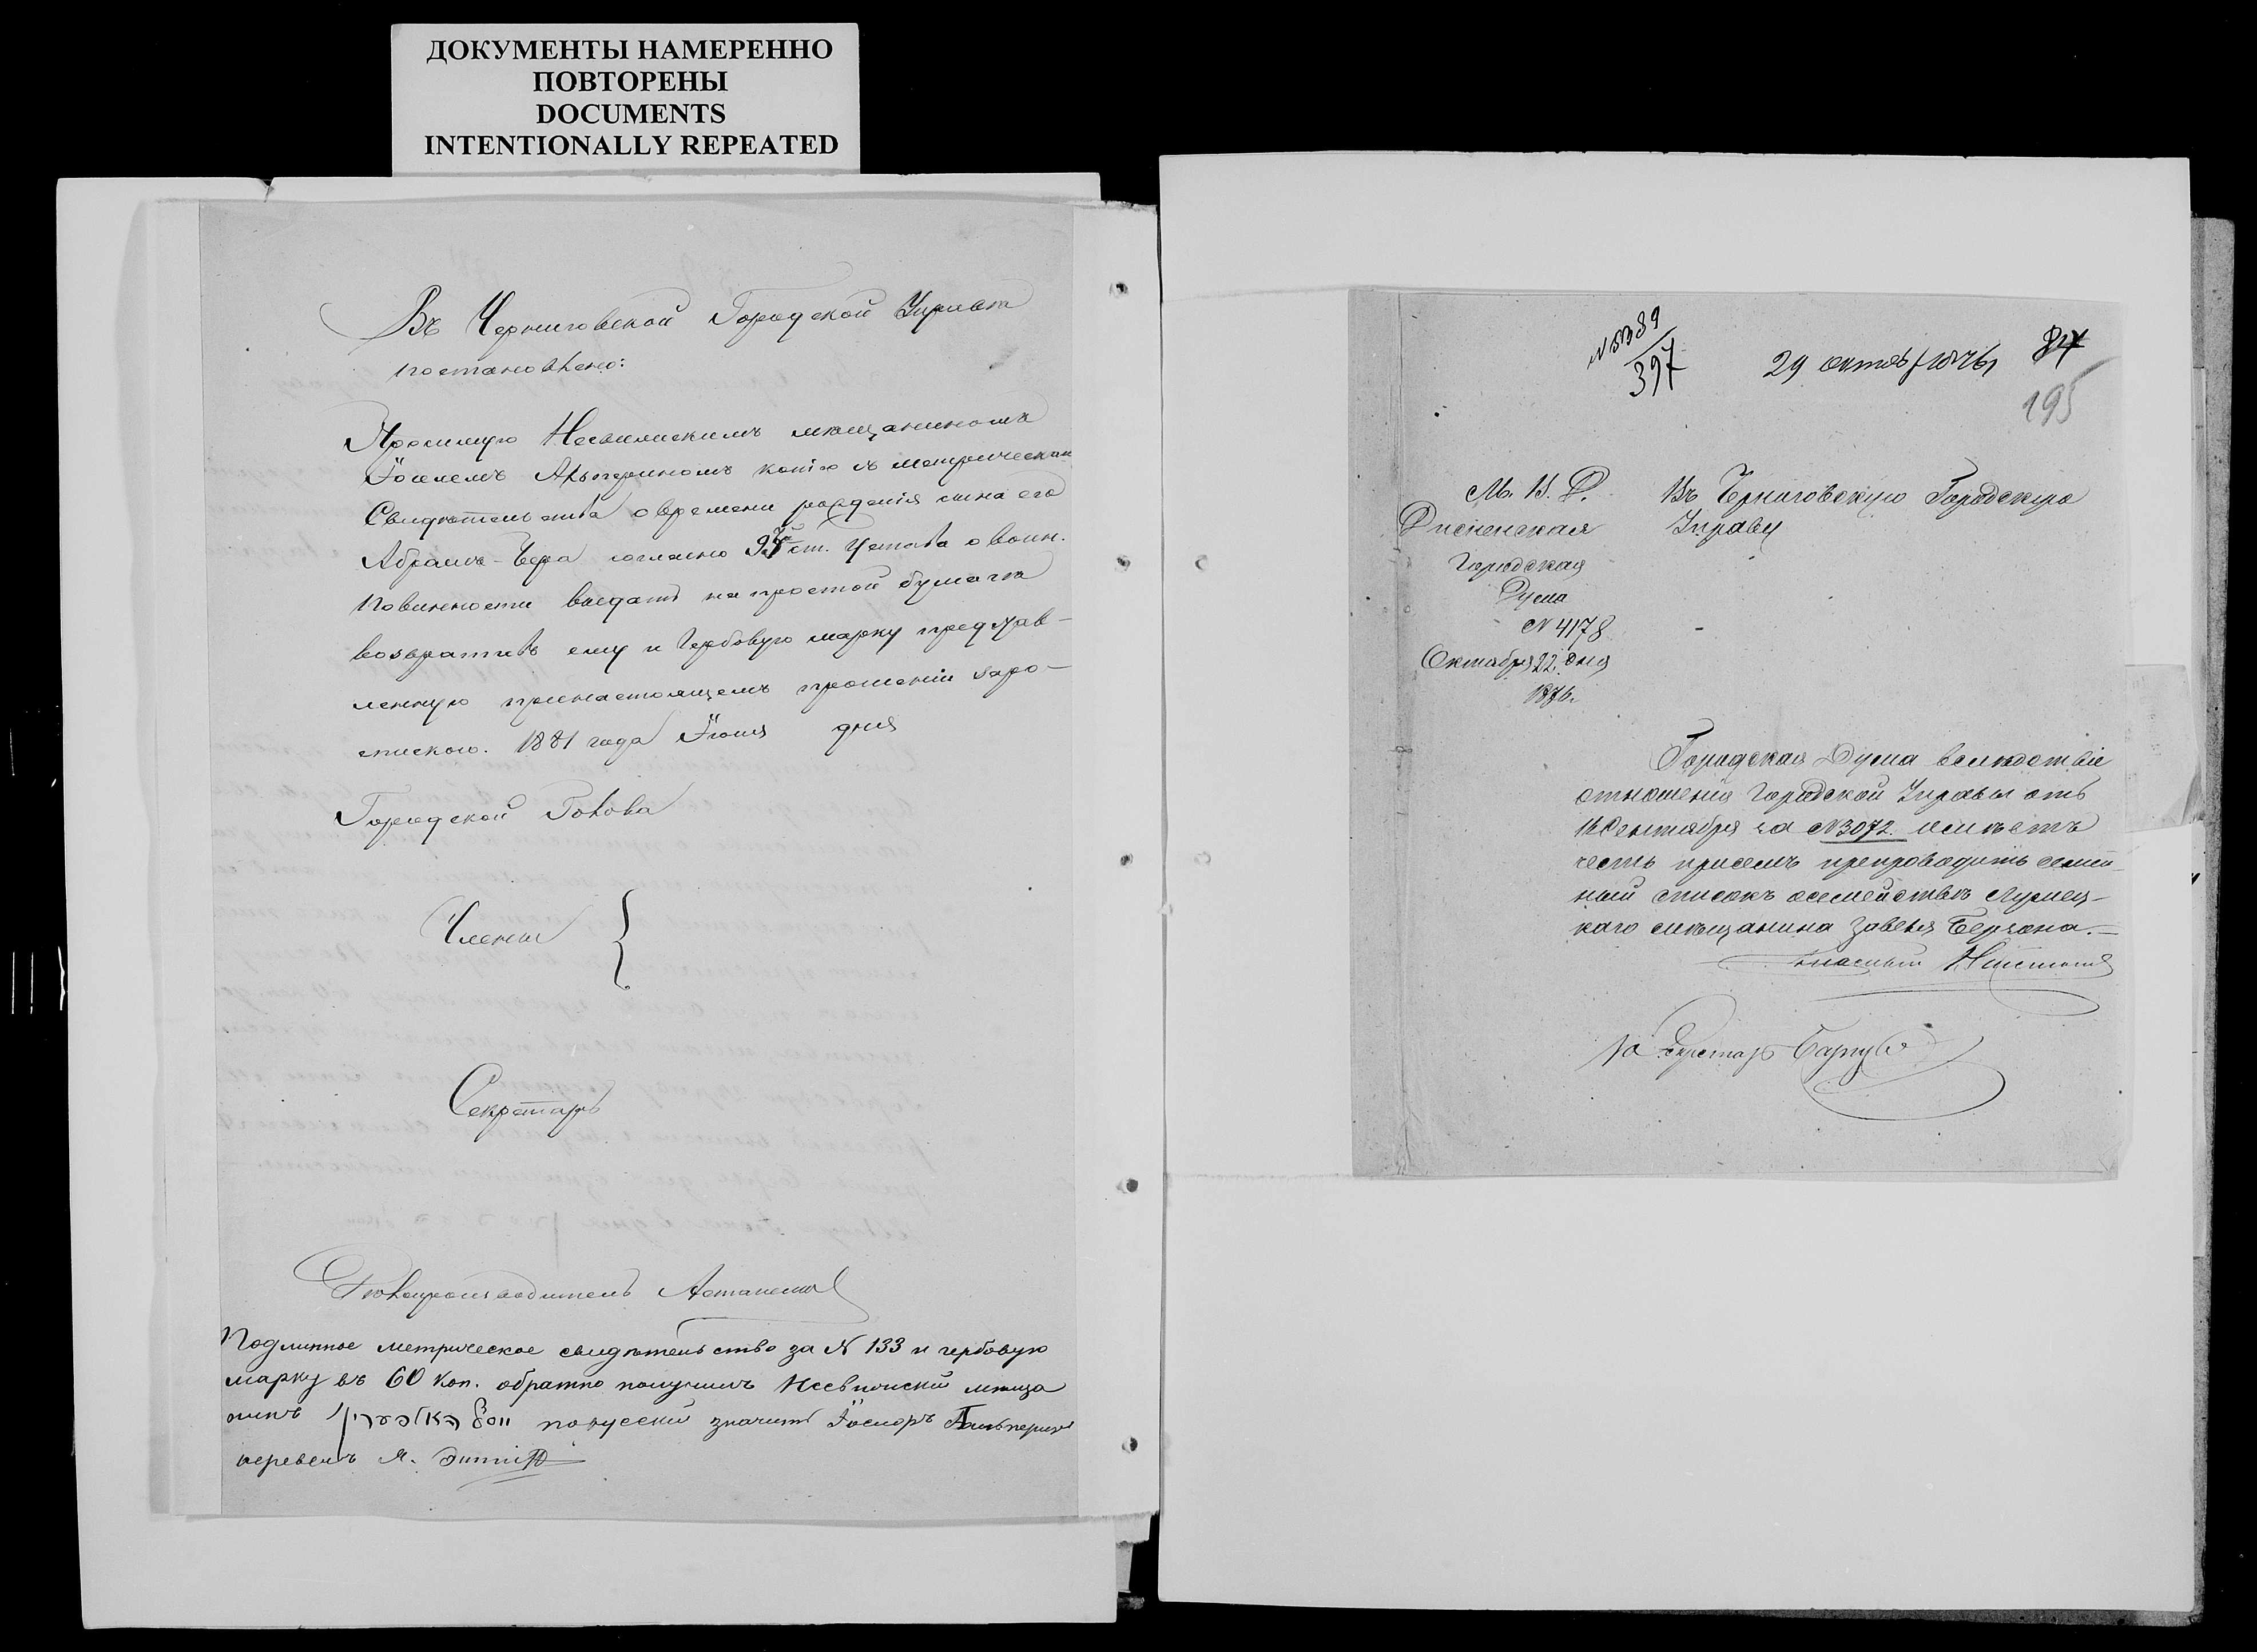 ДОКУМЕНТЫ НАМЕРЕННО
ПОВТОРЕНЫ
DOCUMENTS
INTENTIONALLY REPEATED
Въ Черниговской Городской Управѣ
постановлено:
Просимую Несвижскимъ мѣщаниномъ
Іоселемъ Альпериномъ копію съ метрическаго
Свидѣтельства о времени рожденія сына его
Абрама-Бера согласно 95 ст. Устава о воин.
Повинности выдать на простой бумагѣ
возвративъ ему и Гербовую марку представ-
ленную при настоящемъ прошеніи заро-
спискою. 1881 года Іюня дня
Городской Голова
Члены {
Секретарь
Дѣлопроизводитель
Подлинное метрическое свидѣтельство за N 133 и гербовую
марку въ 60 коп. обратно получилъ Несвижскій мѣща
нинъ יוסל האלפערין порусски значитъ Іосиоръ Гальперинъ
перевелъ Я.
N 5389
397
29 октяб 1876
84
195
М. В. Д.
Дисненская
Городская
Дума
N 4178
Октября 22 дня
1876 г.
Въ Черниговскую Городскую
Управу
Городская Дума вслѣдствіе
отношенія Городской Управы отъ
16 Сентября за N 3072 имѣетъ
честь присемъ препроводить семей-
ный списокъ осемействѣ Лужец-
каго мѣщанина Завеля Берзона.
Гласный
За Секретаря